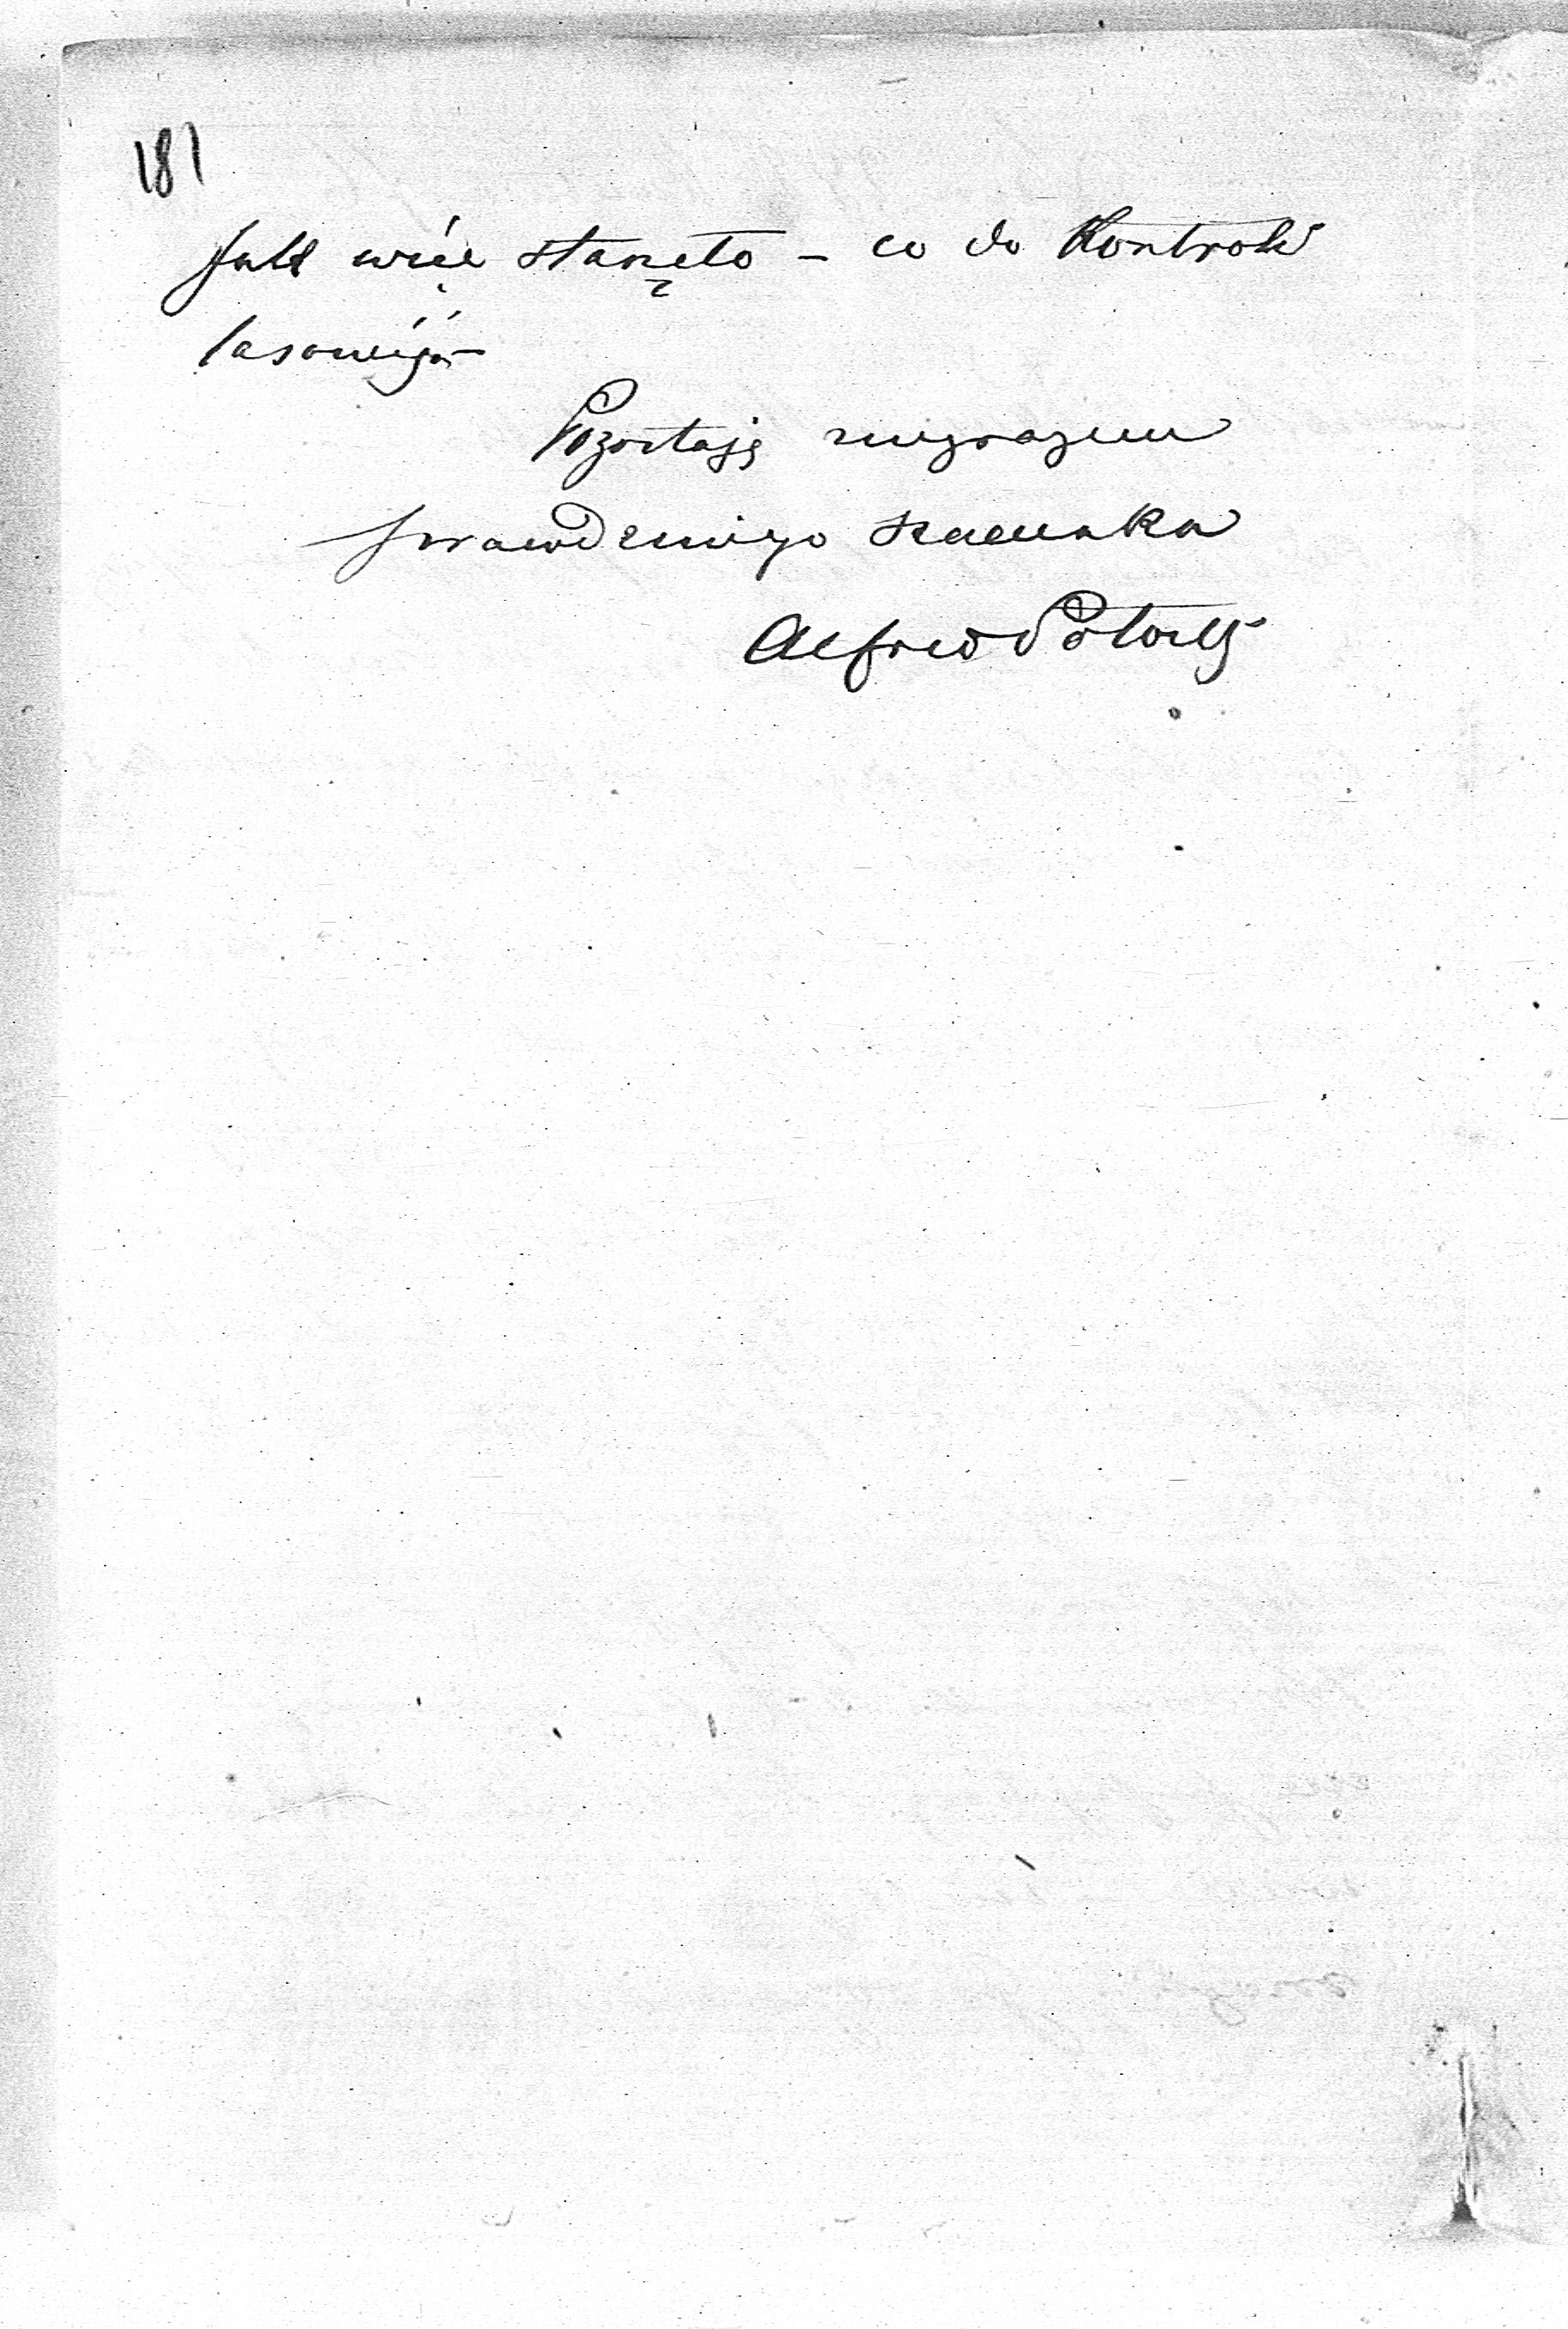 181
jak więc stanęło – co do Kontroli
lasowéj –
Pozostaję z wyrazem
prawdziwego szacunku
Alfred Potocki